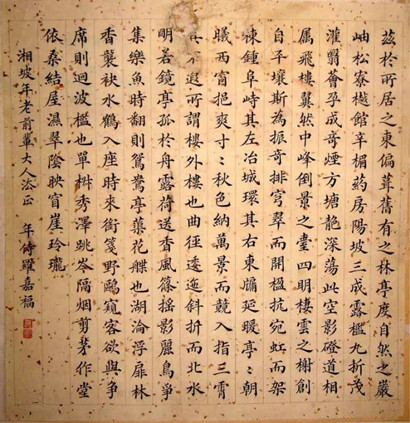 茲於所居之東偏葺舊有之林亭度自然之巖
岫松寮樾館辛楣药房陽坡三成露檻九折茂
灌翳薈孕成奇煙方塘艷深蕩此空影磴道相
属飛樓翼然中峰倒景之臺四明棲雲之榭創
自平壤斯為振奇排穹翠而開楹抗宛虹而架
棟鍾阜峙其左冶城環其右東牖延曖亭亭朝
曦西窗挹爽寸寸秋色納萬景而競入指三霄
其不遐所謂樓外樓也曲徑透迤斜折而北水
明若鏡亭孤於舟露荷送香風篠摇影麗鳥爭
集樂魚時翻則鴛鴦亭藥花艓也湖淪浮扉林
香襲袂水鶴入座時來銜箋野鷗窺客欲與爭
席則迴波檻也單椒秀澤跳岑隔烟剪茅作堂
依桼結屋濕翠陰映窅崖玲瓏
湘坡年老前輩大人法正
年侍羅嘉福